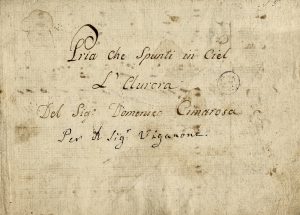 Pria che Spunti in Ciel
L'Aurora
Del Sig.r Domenico Cimarosa
Per il Sig.r Viganone